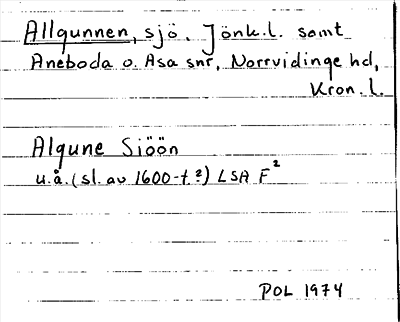 Allgunnen, sjö. Jönk.l. samt
Aneboda o. Asa snr, Norrvidinge hd,
Kron. l.
Algune Siöön
u.å. (sl. av 1600-t.?) LSA F²
POL 1974